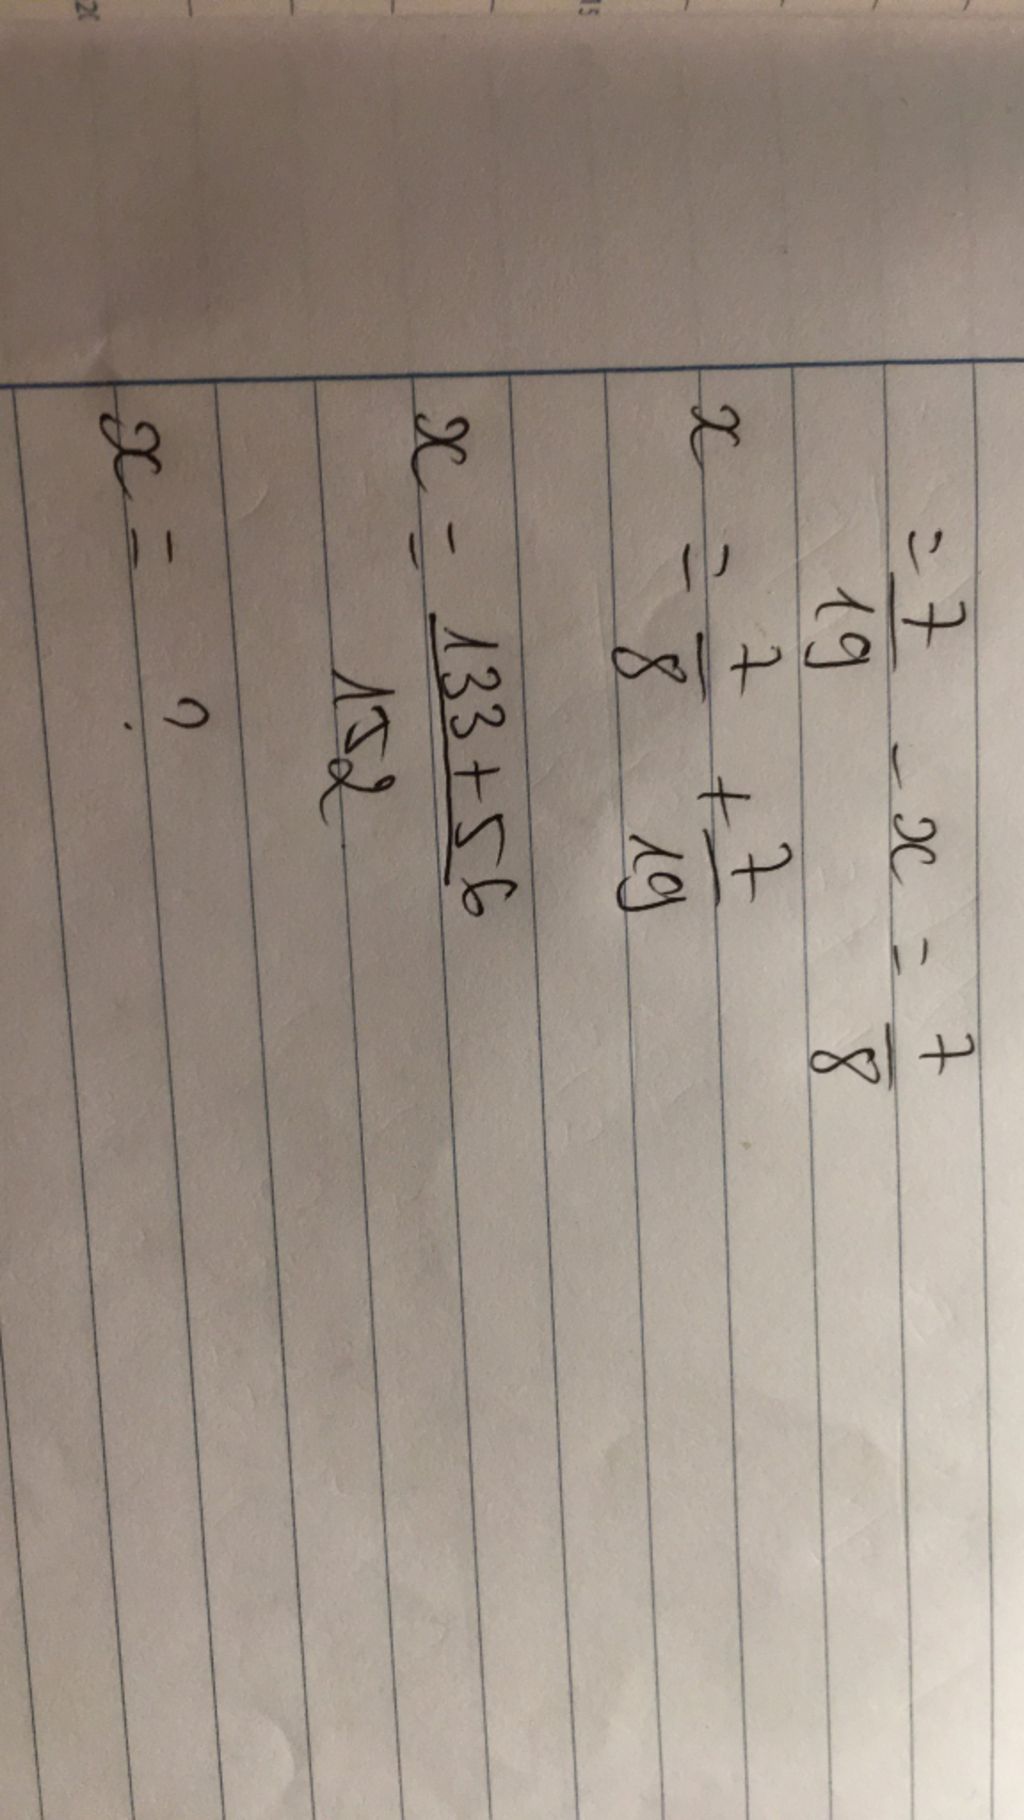 = 7/19 - x = 7/8
x = 7/8 + 7/19
x = 133+56/152
x = ?